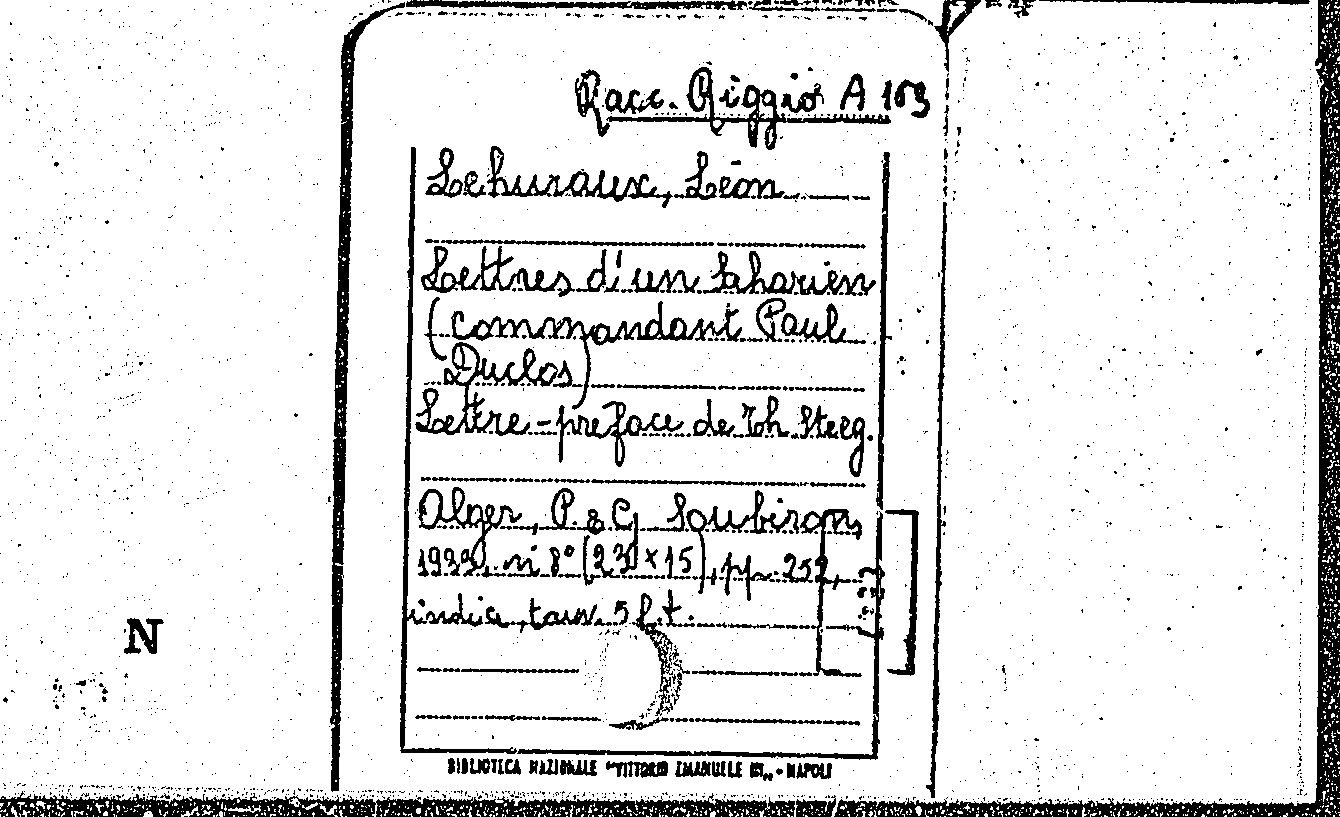 Racc. Riggio A 103
Lehuraux, Léon
Lettres d'un Saharien
(commandant Paul
Duclos)
Lettre-preface de Th Steeg.
Alger, P. & G. Soubiron,
1933, in 8° (23 x 15), pp. 252,
indici, tavv. 5 f.t.
N
BIBLIOTECA NAZIONALE "VITTORIO EMANUELE III" - NAPOLI